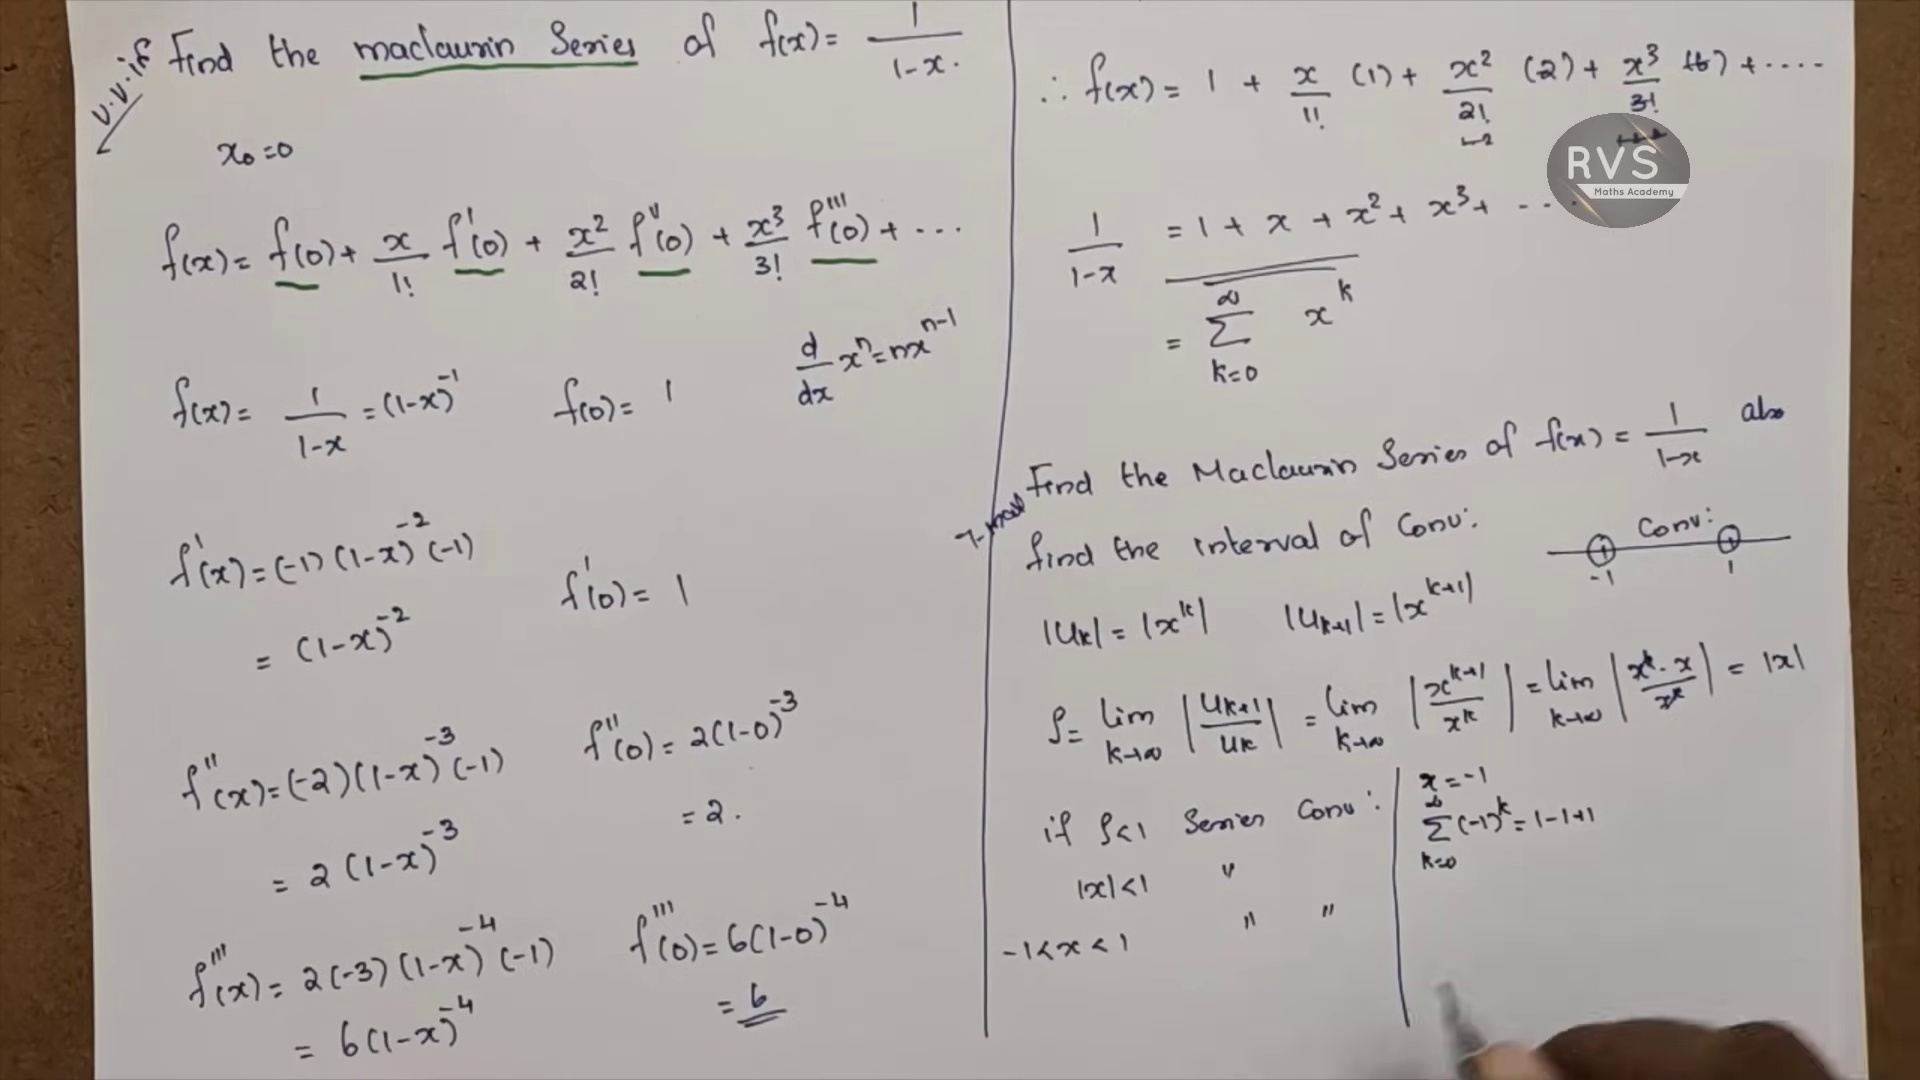 V.V.if Find the maclaurin Series of f(x) = 1/(1-x).
x₀=0
f(x) = f(0) + x/1! f'(0) + x²/2! f''(0) + x³/3! f'''(0) + ...
d/dx xⁿ = nxⁿ⁻¹
f(x) = 1/(1-x) = (1-x)⁻¹ f(0) = 1
f'(x) = (-1)(1-x)⁻²(-1)
= (1-x)⁻² f'(0) = 1
f''(x) = (-2)(1-x)⁻³(-1) f''(0) = 2(1-0)⁻³
= 2(1-x)⁻³ = 2.
f'''(x) = 2(-3)(1-x)⁻⁴(-1) f'''(0) = 6(1-0)⁻⁴
= 6(1-x)⁻⁴ = 6
∴ f(x) = 1 + x/1! (1) + x²/2! (2) + x³/3! (6) + ....
RVS
Maths Academy
1/(1-x) = 1 + x + x² + x³ + ...
= ∞ Σ k=0 xᵏ
Find the Maclaurin Series of f(x) = 1/(1-x) also
find the interval of Conv:
Conv:
-1 1
|Uk| = |xᵏ| |Uk+1| = |xᵏ⁺¹|
ρ = lim k→∞ |Uk+1/Uk| = lim k→∞ |xᵏ⁺¹/xᵏ| = lim k→∞ |xᵏ·x/xᵏ| = |x|
if ρ<1 Series Conv:
|x|<1 "
-1<x<1 " "
x = -1
∞ Σ k=0 (-1)ᵏ = 1-1+1